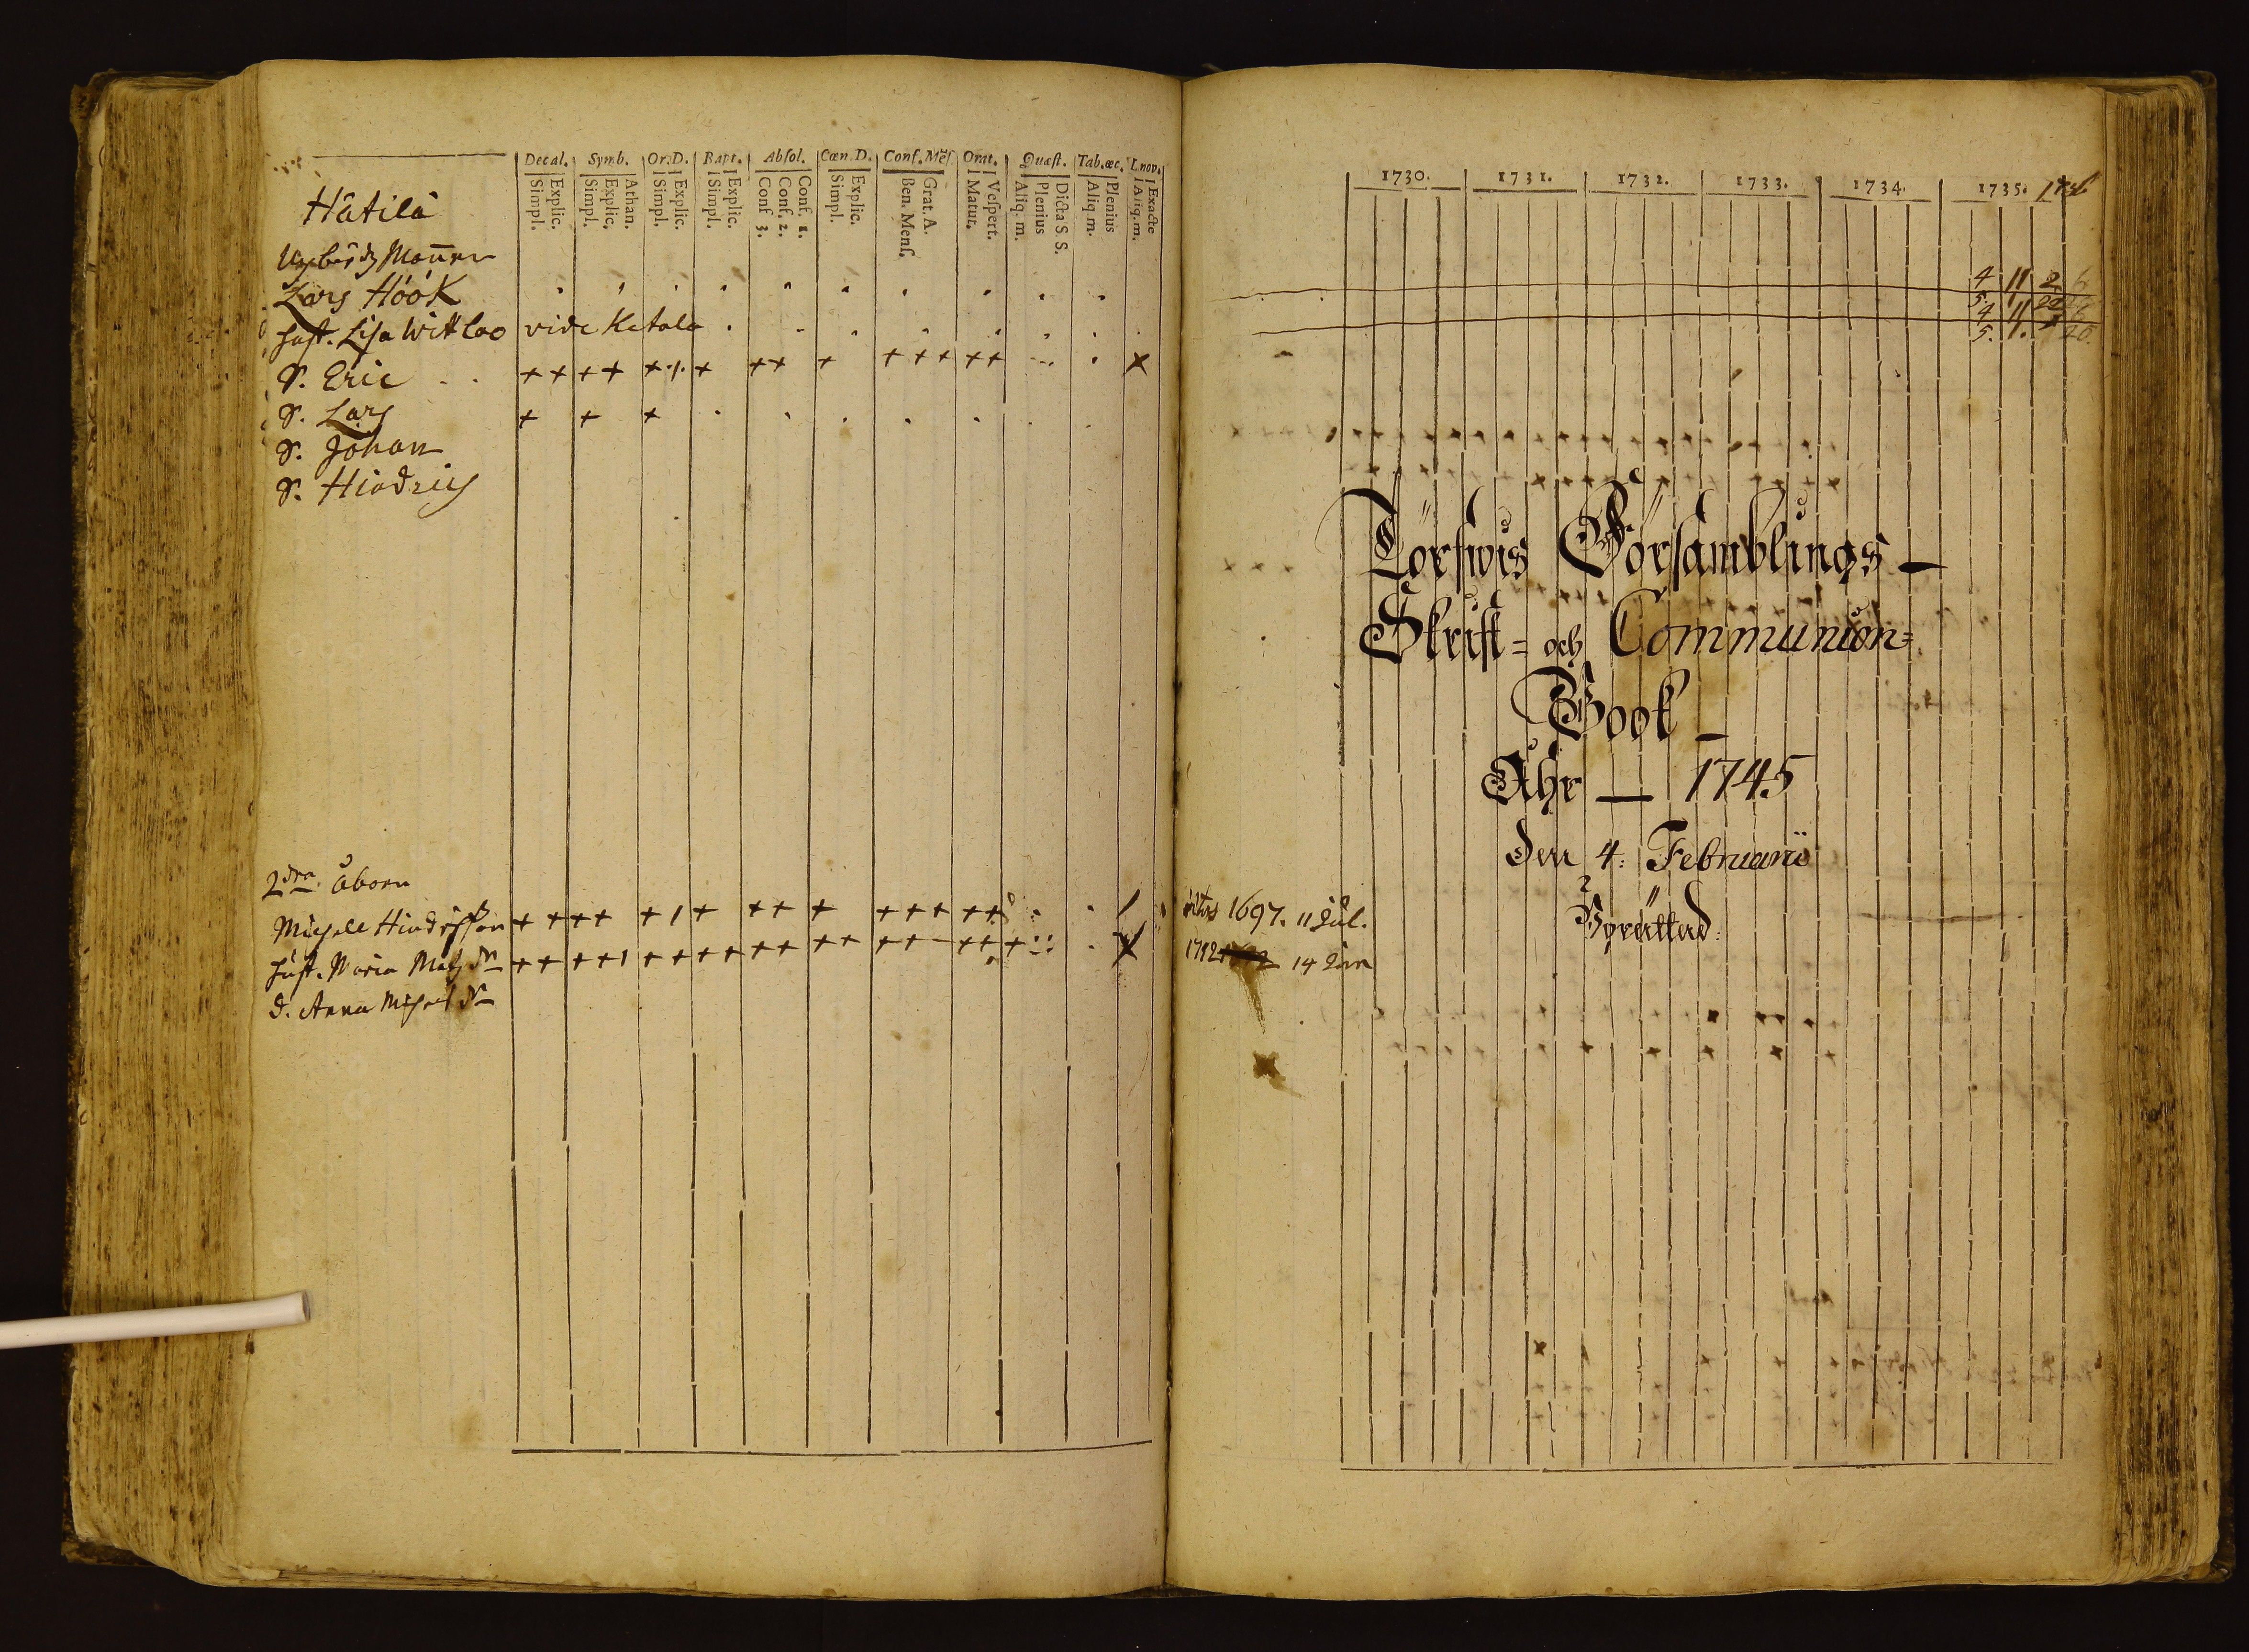 Decal. Symb. Or. D. Bapt. Absol. Cœn. D. Conf. Mēs. Orat. Quæst. Tab. œc. L. nov.
Explic. Simpl. Athan. Explic. Simpl. Explic. Simpl. Explic. Simpl. Conf. 1. Conf. 2. Conf 3. Explic. Simpl. Grat. A. Ben. Mens. Vespert. Matut. Dicta S. S. Plenius Aliq. m. Plenius Aliq. m. Exacte Aliq. m.
Hätilä
Lars Höök
hust. Lisa Wittloo vide Ketala
S. Eric
S. Lars
S. Johan
S. Hindrich
2dra åboen
Michell Hindrichsson
hust. Maria Mats dr
d. Anna Michels dr
1730. 1731. 1732. 1733. 1734. 1735. 1736
4 11 2 6
5.
4 11
5. 1. 20.
Törfwis Församblings
Skrift= och Communion=
Book
Åhr 1745
den 4: Februarii
Uprättad:
1697. 11 Jul.
1712 14 Jun